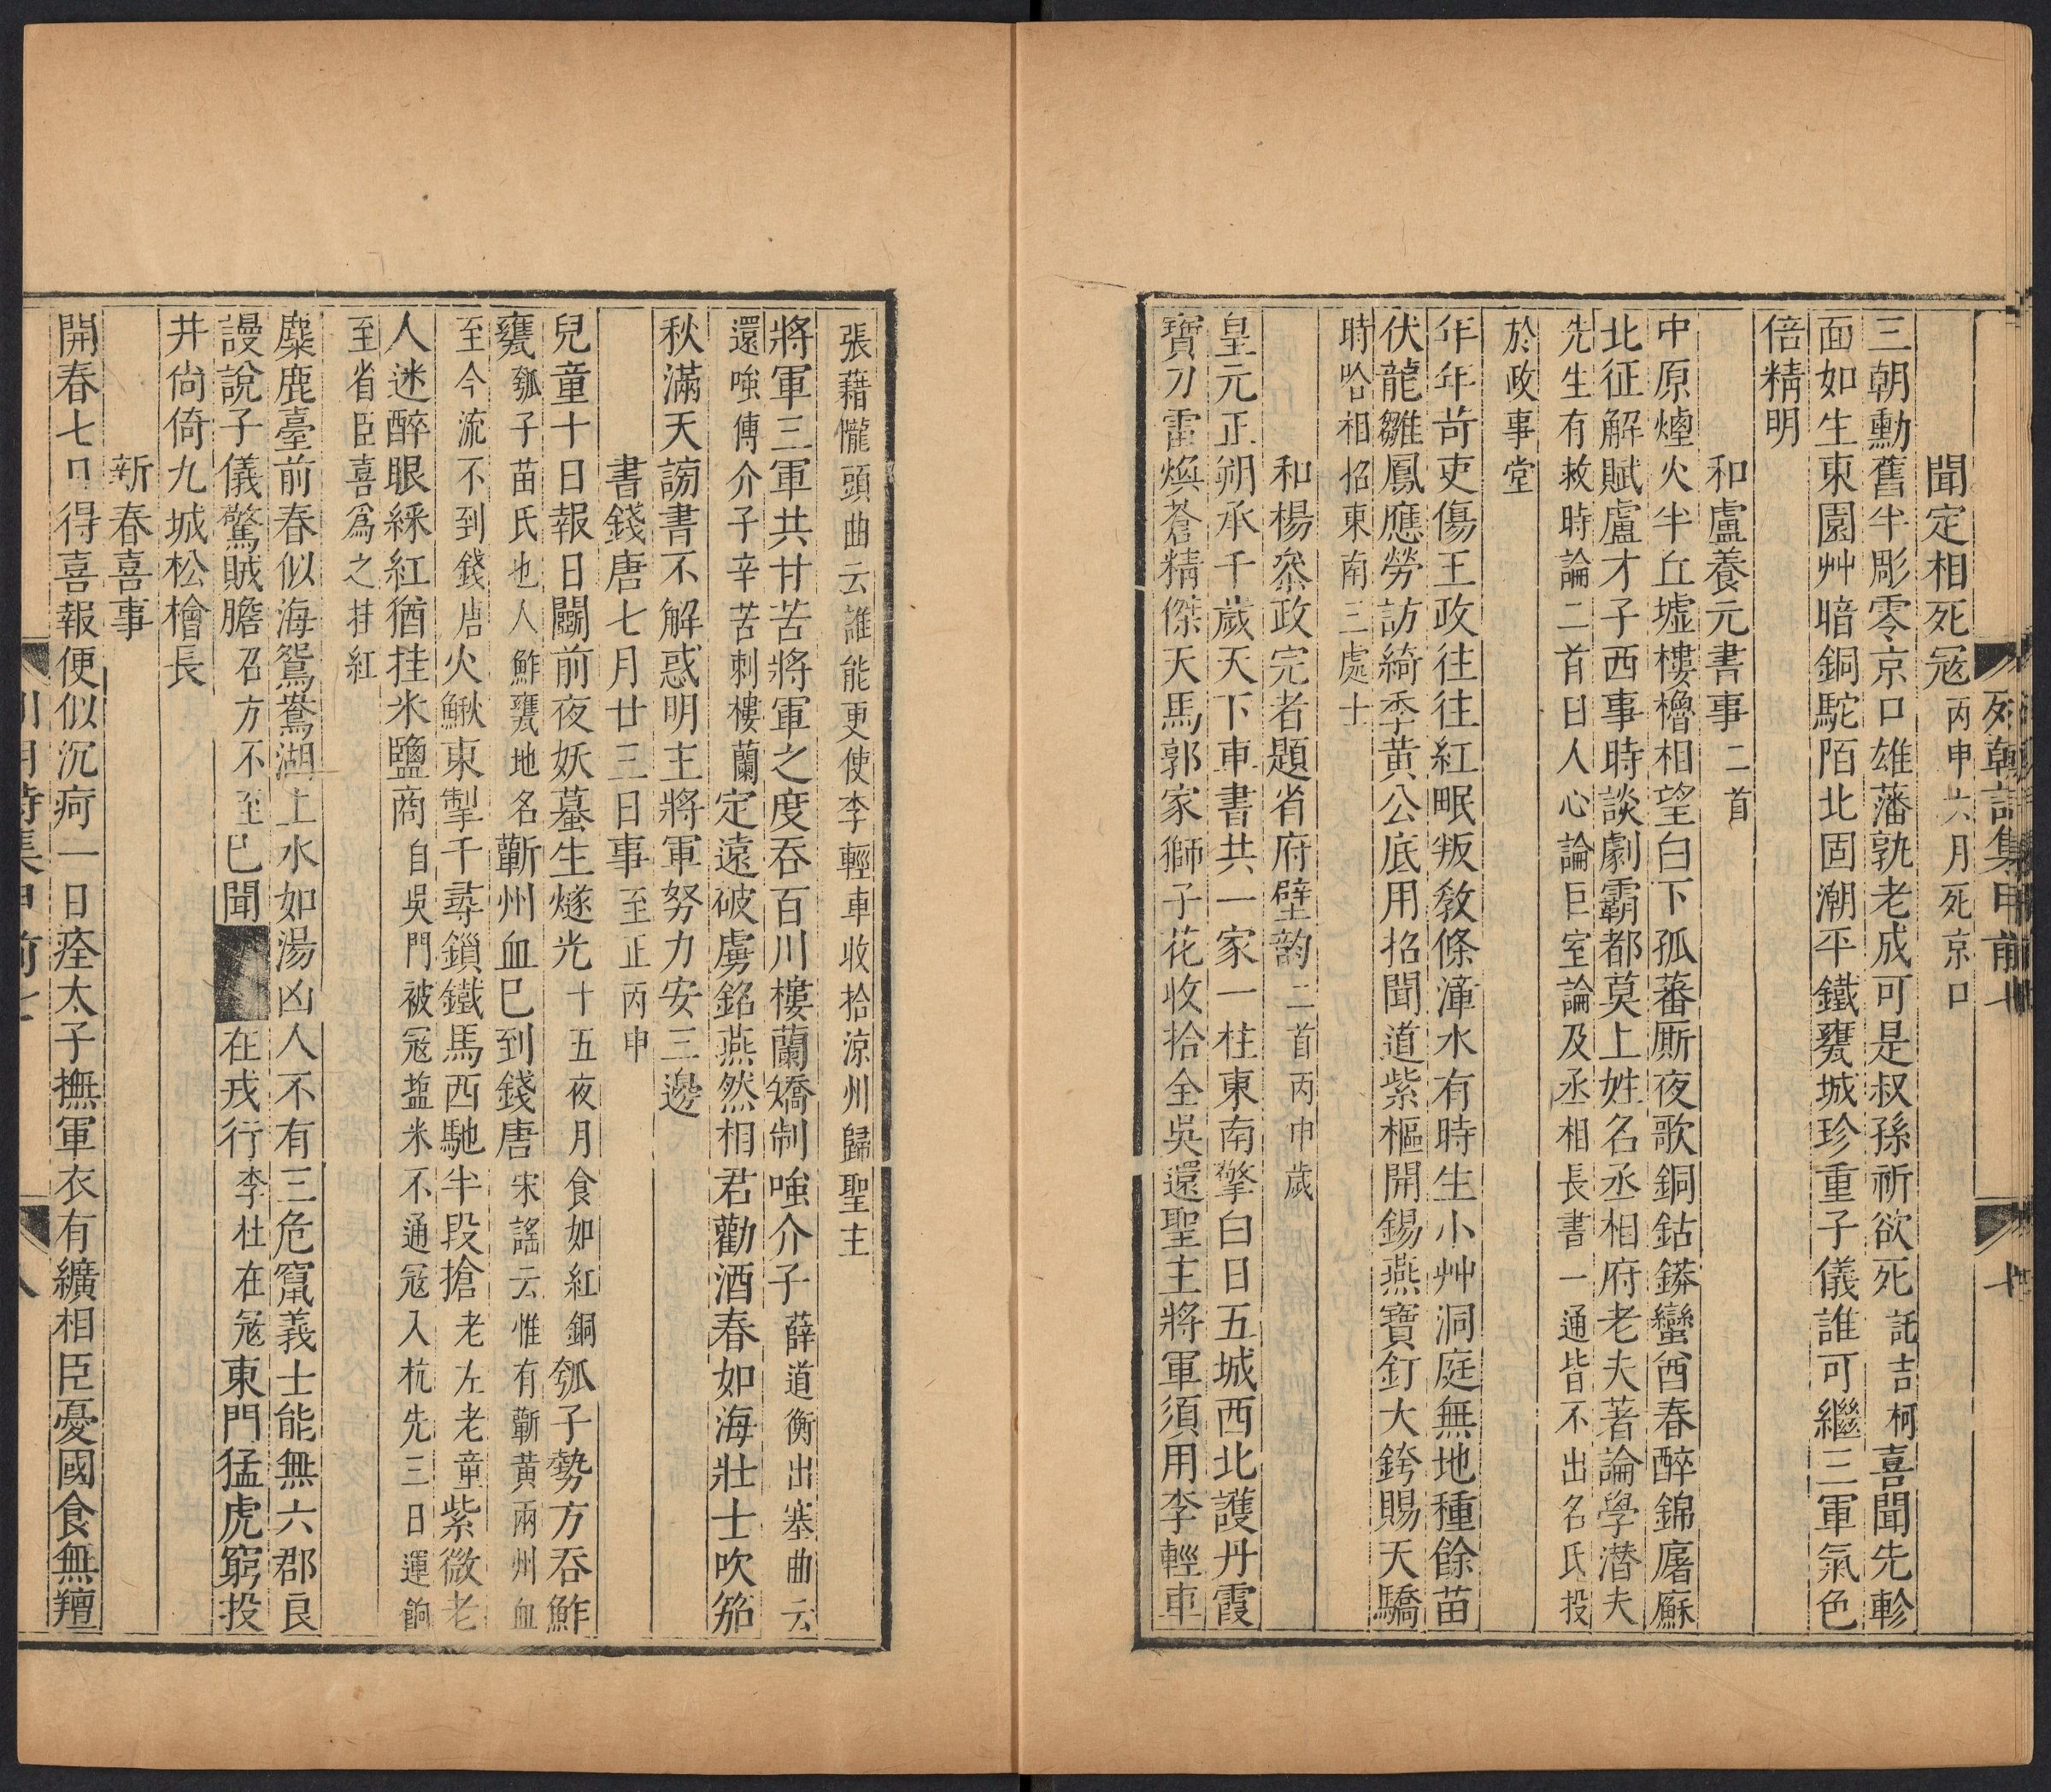 列朝詩集甲前七
七
聞定相死寇丙申六月死京口
三朝勳舊半彫零京口雄藩孰老成可是叔孫祈欲死託吉柯喜聞先軫
面如生東園艸暗銅駝陌北固潮平鐵甕城珍重子儀誰可繼三軍氣色
倍精明
和盧養元書事二首
中原煙火半丘墟樓櫓相望白下孤蕃厮夜歌銅鈷鏻蠻酋春醉錦屠廯
北征解賦盧才子西事時談劇霸都莫上姓名丞相府老夫著論學潛夫
先生有救時論二首曰人心論巨室論及丞相長書一通皆不出名氏投
於政事堂
年年苛吏傷王政往往紅眠叛敎條漳水有時生小艸洞庭無地種餘苗
伏龍雛鳳應勞訪綺季黃公底用招聞道紫樞開錫燕寶釘大銙賜天驕
時哈相招東南三處士
和楊叅政完者題省府壁韵二首丙申歲
皇元正朔承千歲天下車書共一家一柱東南擎白日五城西北護丹霞
寶刀雷煥蒼精傑天馬郭家獅子花收拾全吳還聖主將軍須用李輕車
張藉隴頭曲云誰能更使李輕車收拾涼州歸聖主
將軍三軍共甘苦將軍之度吞百川樓蘭矯制嗤介子薛道衡出塞曲云
還嗤傅介子辛苦刺樓蘭定遠破虜銘燕然相君勸酒春如海壯士吹笳
秋滿天謗書不解惑明主將軍努力安三邊
書錢唐七月廿三日事至正丙申
兒童十日報日鬭前夜妖蟇生燧光十五夜月食如紅銅瓠子勢方吞鮓
甕瓠子苗氏也人鮓甕地名蘄州血已到錢唐宋謠云惟有蘄黃兩州血
至今流不到錢唐火鰍東掣千尋鎖鐵馬西馳半段搶老左老童紫微老
人迷醉眼綵紅猶挂米鹽商自吳門被寇鹽米不通寇入杭先三日運餉
至省臣喜爲之挂紅
麋鹿臺前春似海鴛鴦湖上水如湯凶人不有三危竄義士能無六郡良
謾說子儀驚賊膽召方不至已聞在戎行李杜在寇東門猛虎窮投
井尙倚九城松檜長
新春喜事
開春七日得喜報便似沉疴一日痊太子撫軍衣有纊相臣憂國食無羶
列朝詩集甲前七
八